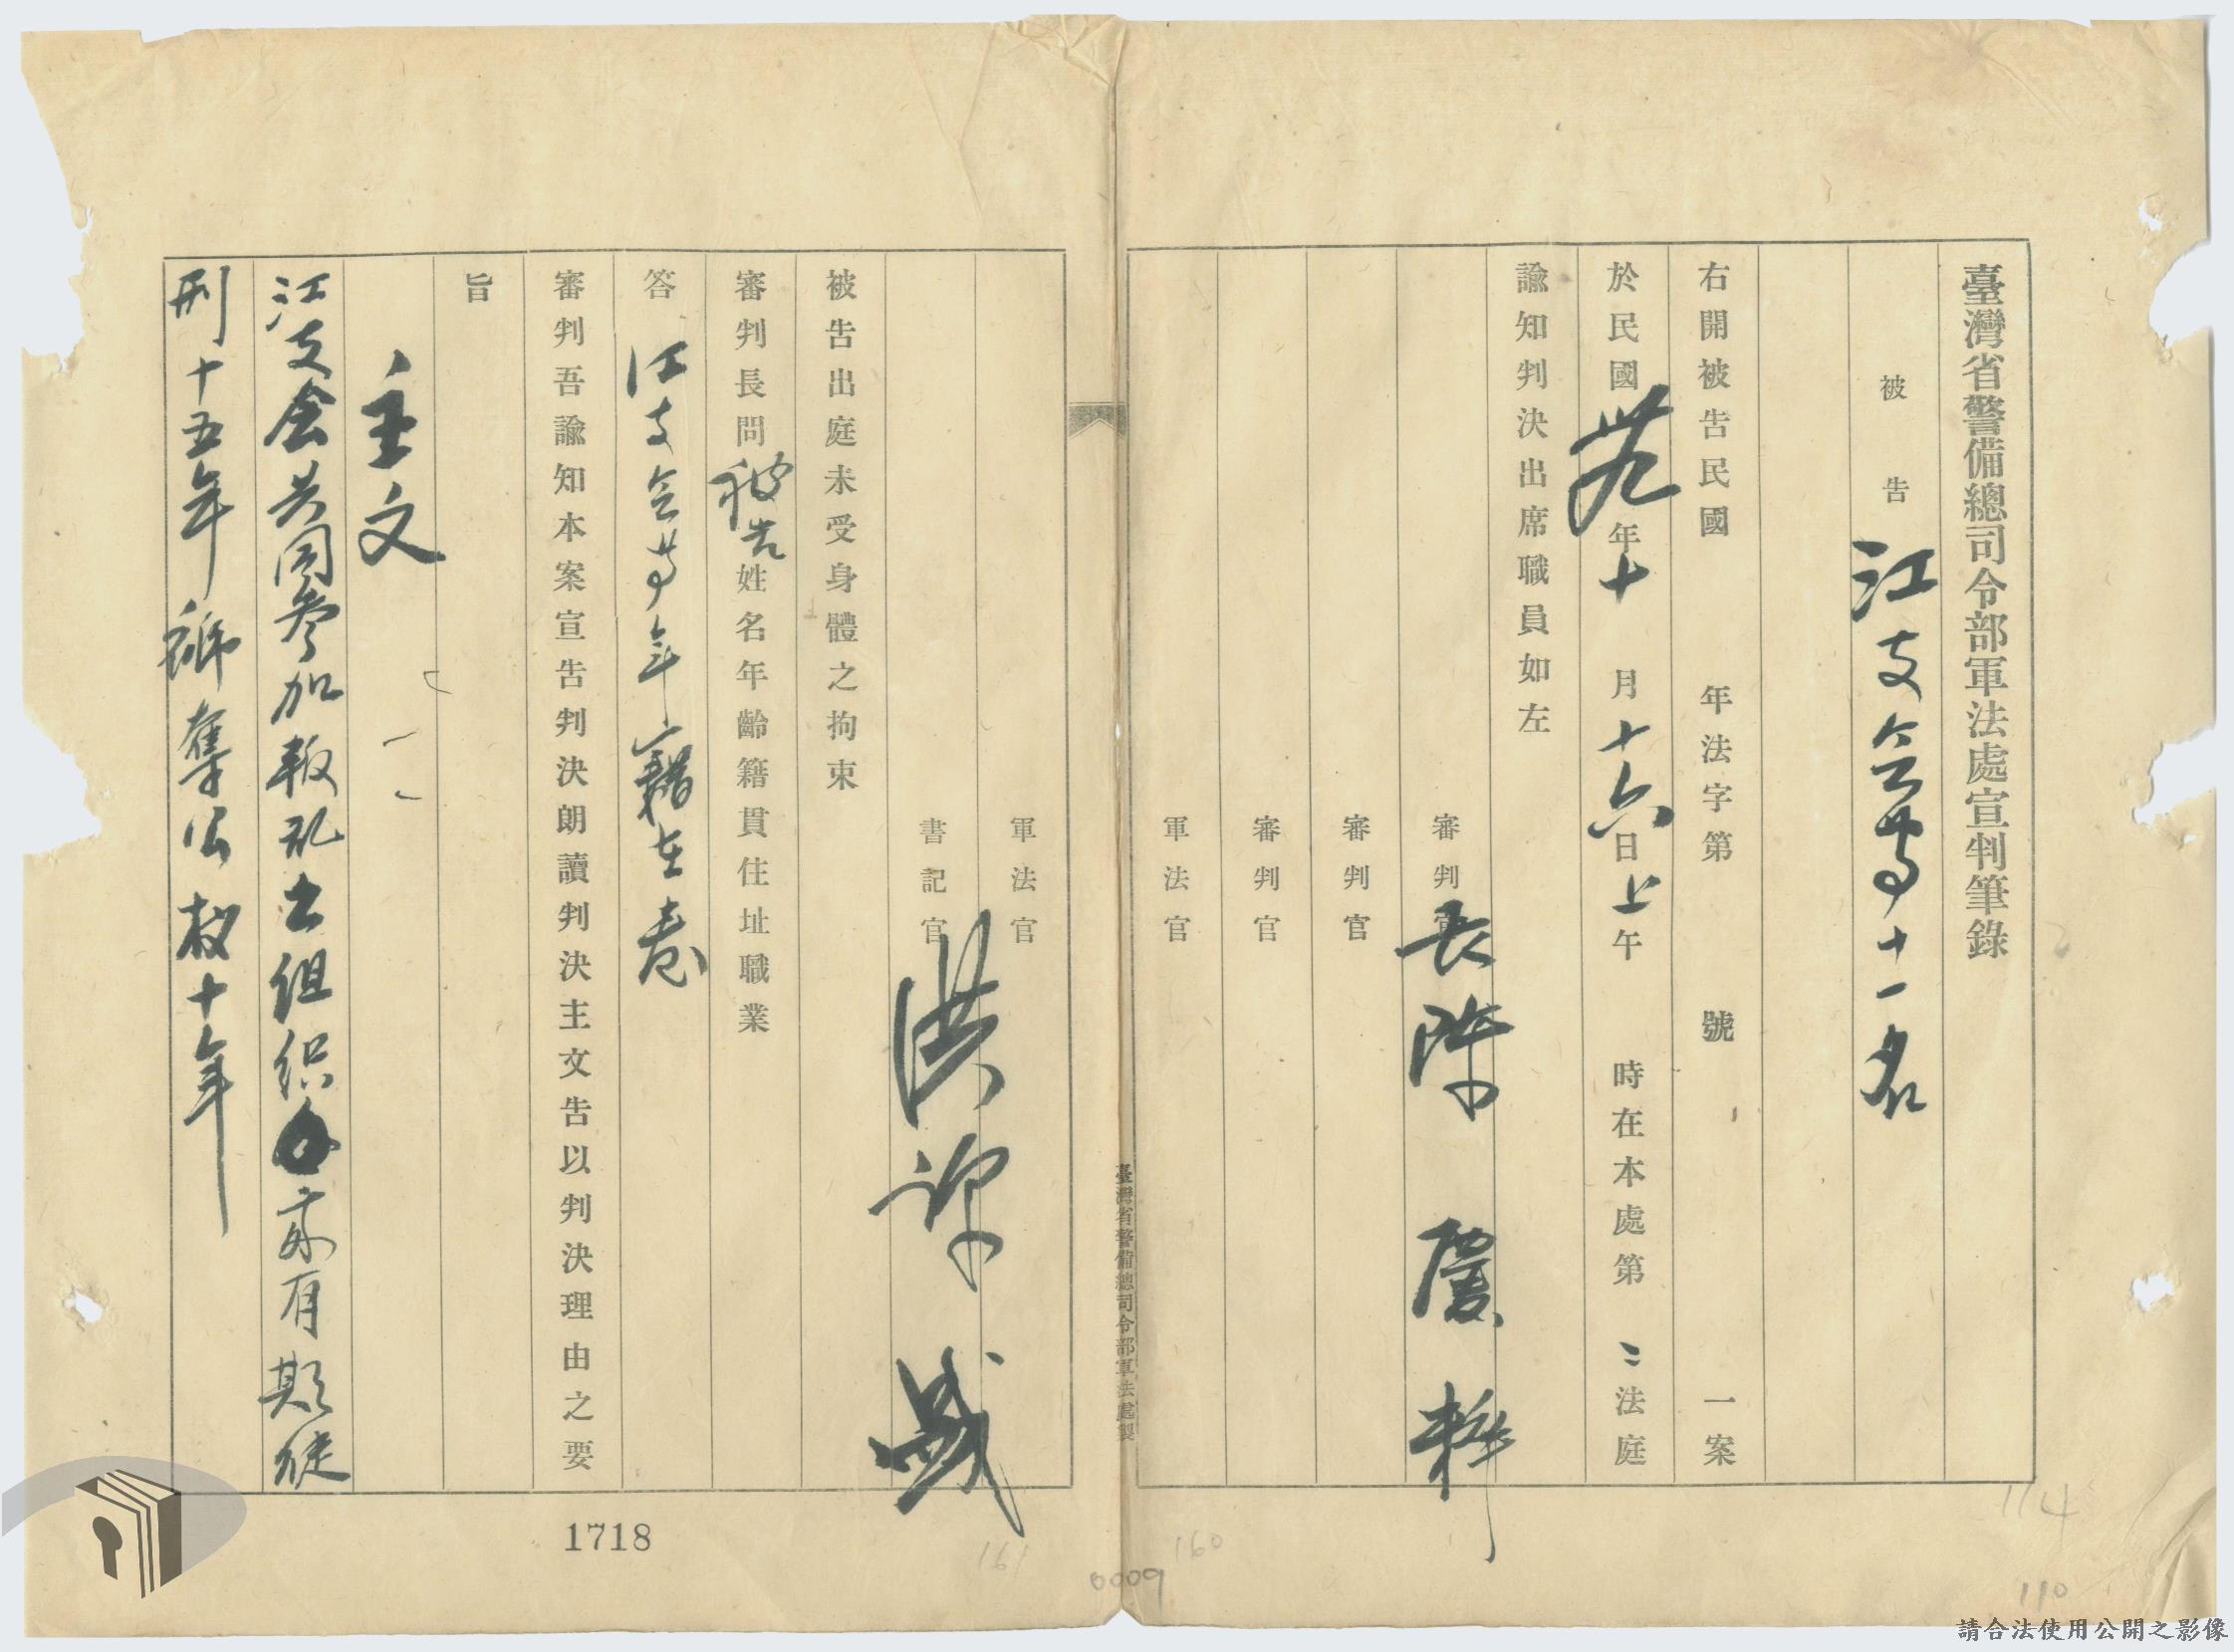 臺灣省警備總司令部軍法處宣判筆錄
被告 江支会等十一名
右開被告民國 年法字第 號 一案
於民國卅九年十月十六日上午 時在本處第二法庭
諭知判決出席職員如左
審判官長陳慶粹
審判官
審判官
軍法官
臺灣省警備總司令部軍法處製
軍法官
書記官 洪 盛
被告出庭未受身體之拘束
審判長問被告姓名年齡籍貫住址職業
答 江支会等年籍在卷
審判吾諭知本案宣告判決朗讀判決主文告以判決理由之要
旨
主文
江支会共同參加叛乱之组织 处有期徒
刑十五年褫奪公权十年
1718
161
160
0009
114
110
請合法使用公開之影像